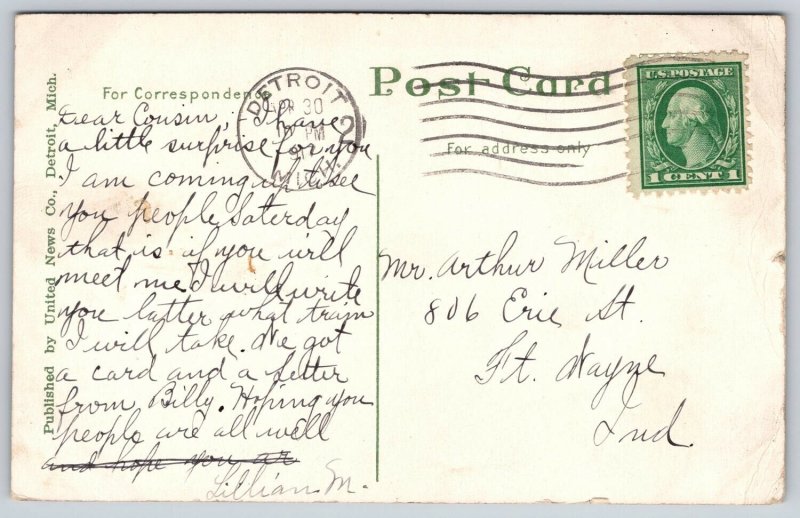 Post Card
For Correspondence
For address only
Published by United News Co., Detroit, Mich.
DETROIT
APR 30
PM
MICH.
2
U.S. POSTAGE
1 CENT 1
Dear Cousin, I have
a little surprise for you
I am coming up to see
you people Saterday
that is if you will
meet me I will write
you latter what train
I will take. We got
a card and a letter
from Billy. Hoping you
people are all well
and hope you ar
Lillian M.
Mr. Arthur Miller
806 Erie St.
Ft. Wayne
Ind.